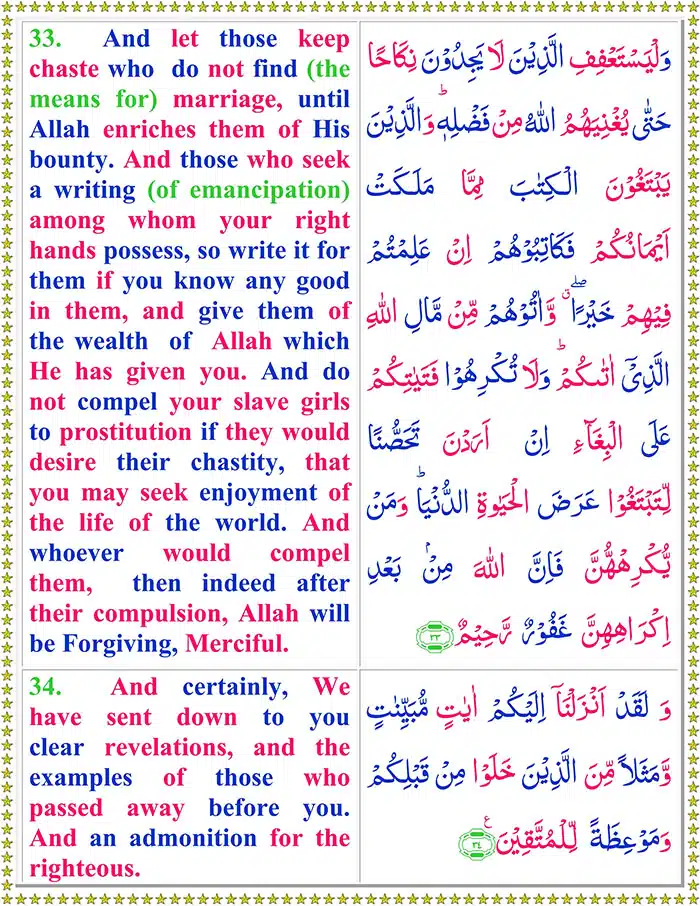 33. And let those keep
chaste who do not find (the
means for) marriage, until
Allah enriches them of His
bounty. And those who seek
a writing (of emancipation)
among whom your right
hands possess, so write it for
them if you know any good
in them, and give them of
the wealth of Allah which
He has given you. And do
not compel your slave girls
to prostitution if they would
desire their chastity, that
you may seek enjoyment of
the life of the world. And
whoever would compel
them, then indeed after
their compulsion, Allah will
be Forgiving, Merciful.
وَلْيَسْتَعْفِفِ الَّذِيْنَ لَا يَجِدُوْنَ نِكَاحًا
حَتّٰى يُغْنِيَهُمُ اللّٰهُ مِنْ فَضْلِهٖ ؕ وَالَّذِيْنَ
يَبْتَغُوْنَ الْكِتٰبَ مِمَّا مَلَكَتْ
اَيْمَانُكُمْ فَكَاتِبُوْهُمْ اِنْ عَلِمْتُمْ
فِيْهِمْ خَيْرًا ۖۗ وَّاٰتُوْهُمْ مِّنْ مَّالِ اللّٰهِ
الَّذِيْۤ اٰتٰىكُمْ ؕ وَلَا تُكْرِهُوْا فَتَيٰتِكُمْ
عَلَى الْبِغَآءِ اِنْ اَرَدْنَ تَحَصُّنًا
لِّتَبْتَغُوْا عَرَضَ الْحَيٰوةِ الدُّنْيَا ؕ وَمَنْ
يُّكْرِهْهُّنَّ فَاِنَّ اللّٰهَ مِنْۢ بَعْدِ
اِكْرَاهِهِنَّ غَفُوْرٌ رَّحِيْمٌ ۳۳
34. And certainly, We
have sent down to you
clear revelations, and the
examples of those who
passed away before you.
And an admonition for the
righteous.
وَ لَقَدْ اَنْزَلْنَاۤ اِلَيْكُمْ اٰيٰتٍ مُّبَيِّنٰتٍ
وَّمَثَلًا مِّنَ الَّذِيْنَ خَلَوْا مِنْ قَبْلِكُمْ
وَمَوْعِظَةً لِّلْمُتَّقِيْنَ ۳۴ ع